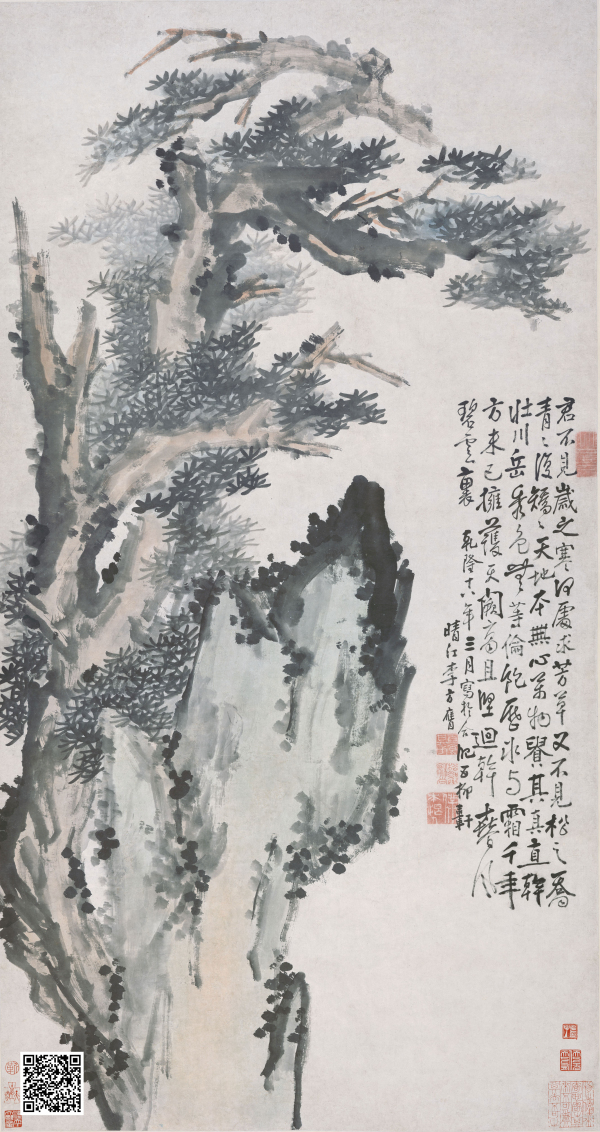 君不見歲之寒何處求芳草又不見松之喬
青〻復矯〻天地本無心萬物貴其真直幹
壯川岳秀色無等倫飽歷冰与霜千年
方未已擁護天闕高且堅迴幹春風
碧雲裏 乾隆十八年三月寫於合肥五柳軒
晴江李方膺